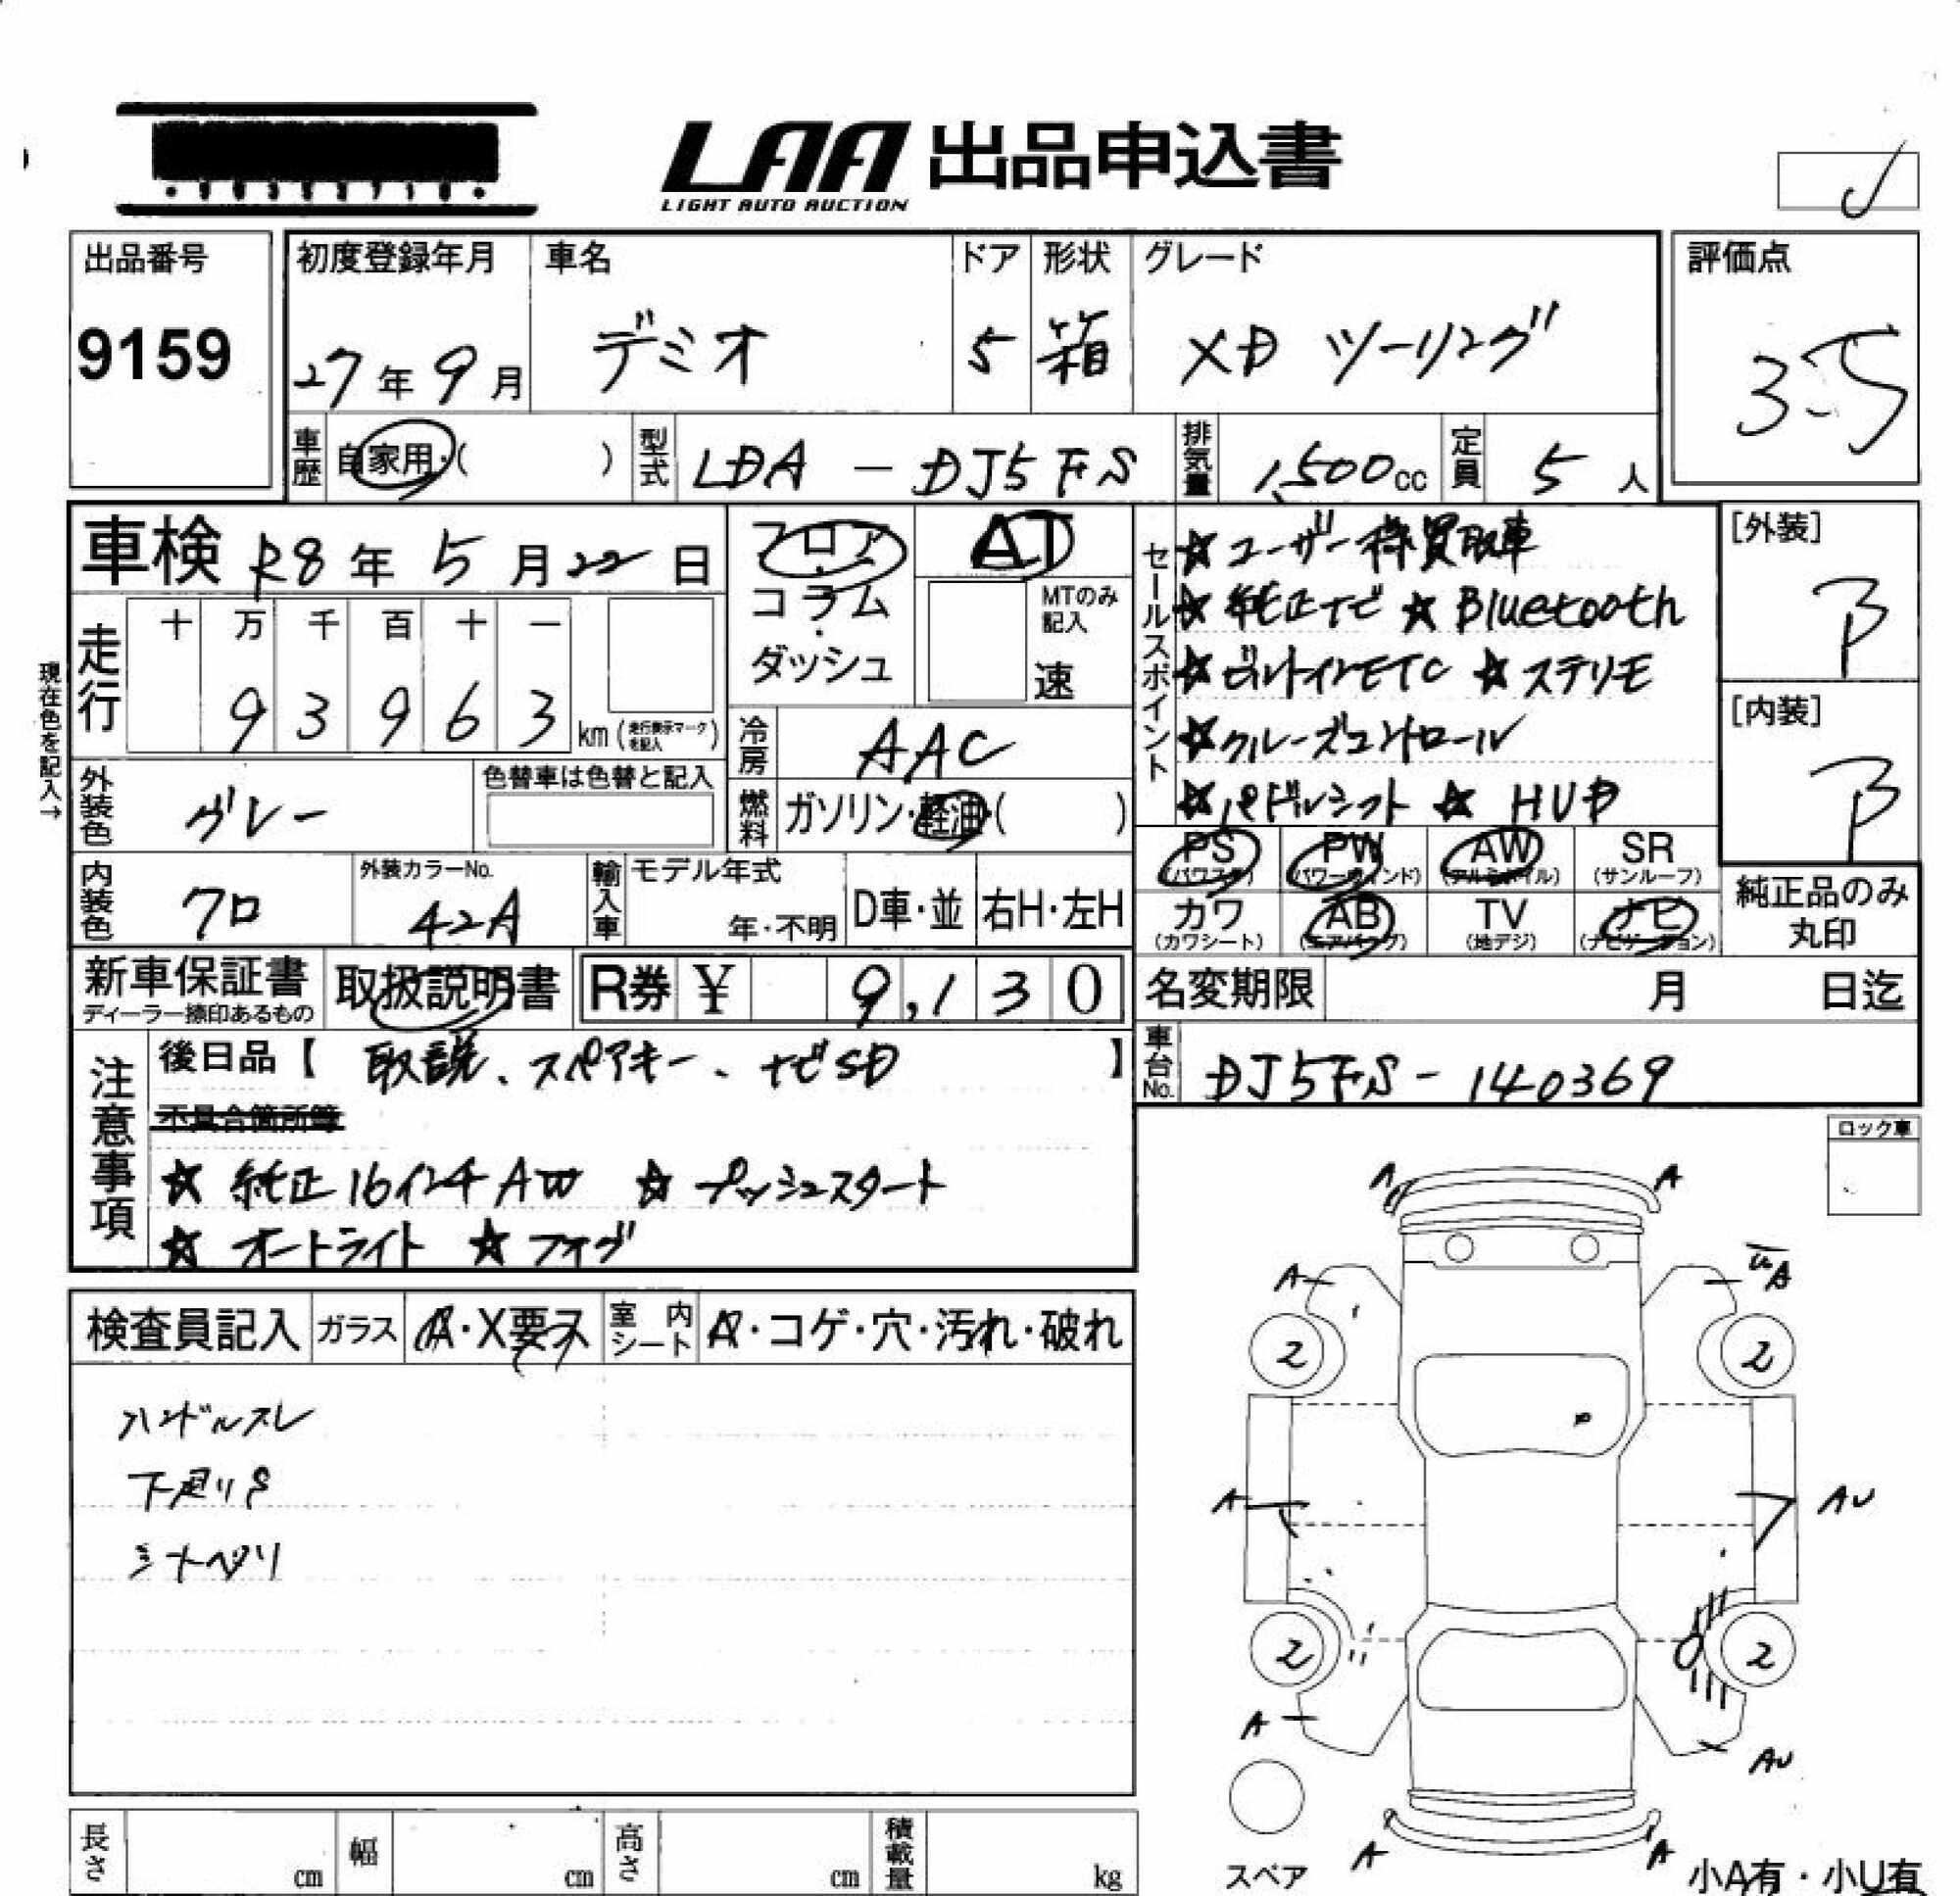 LAA 出品申込書
LIGHT AUTO AUCTION
出品番号
9159
初度登録年月
27年9月
車名
デミオ
ドア
5
形状
箱
グレード
XD ツーリング
評価点
3.5
車歴
自家用・( )
型式
LDA - DJ5FS
排気量
1,500cc
定員
5人
車検 R8年5月22日
フロア・コラム・ダッシュ
AT
MTのみ記入
速
現在色を記入→
走行
十 万 千 百 十 一
9 3 9 6 3 km (走行表示マークを記入)
冷房
AAC
外装色
グレー
色替車は色替と記入
燃料
ガソリン・軽油・( )
内装色
クロ
外装カラーNo.
42A
輸入車
モデル年式
年・不明
D車・並
右H・左H
セールスポイント
☆ユーザー様買取車
☆純正ナビ ☆Bluetooth
☆ビルトインETC ☆ステリモ
☆クルーズコントロール
☆パドルシフト ☆HUD
[外装]
B
[内装]
B
PS (パワステ)
PW (パワーウィンド)
AW (アルミホイル)
SR (サンルーフ)
カワ (カワシート)
AB (エアバッグ)
TV (地デジ)
ナビ (ナビゲーション)
純正品のみ丸印
新車保証書
ディーラー捺印あるもの
取扱説明書
R券 ¥ 9,130
名変期限 月 日迄
車台No.
DJ5FS-140369
注意事項
後日品【 取説、スペアキー、ナビSD 】
不具合箇所等
☆純正16インチAW ☆プッシュスタート
☆オートライト ☆フォグ
ロック車
検査員記入
ガラス
A・X要ス
室内シート
A・コゲ・穴・汚れ・破れ
ハンドルスレ
下廻りS
シートヘリ
A A
A A
2 2
A AU
2 2
A AU
A A
スペア
小A有・小U有
長さ cm
幅 cm
高さ cm
積載量 kg